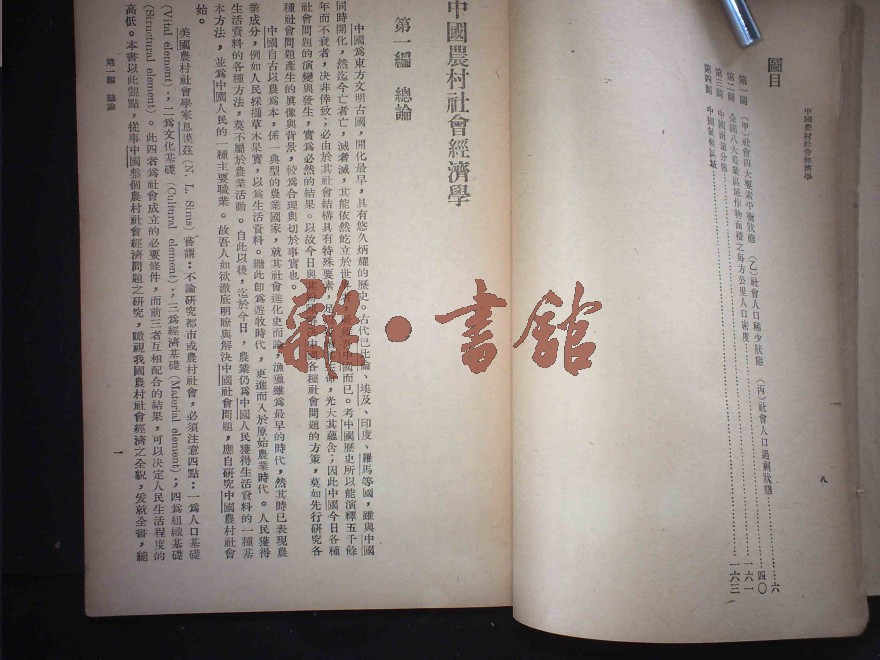 中國農村社會經濟學
圖目
第一圖 (甲)社會四大要素平衡狀態 (乙)社會人口稀少狀態 (丙)社會人口過剩狀態……六
第二圖 全國八大農業區域作物面積之每方公里人口密度……四〇
第三圖 中國雨量分佈……一六一
第四圖 中國氣候區域……一六三
八
中國農村社會經濟學
第一編 總論
中國爲東方文明古國,開化最早,具有悠久炳耀的歷史。古代巴比倫、埃及、印度、羅馬等國,雖與中國
同時開化,然迄今亡者亡,滅者滅,其能依然屹立於世中國而已。考中國歷史所以能演繹五千餘
年而不衰者,決非倖致;必由於其社會結構具有特殊要素,足光大其蘊含;因此中國今日各種
社會問題的演變與發生,實爲必然的結果。以故今日與其中國各種社會問題的方策,莫如先行研究各
種社會問題產生的眞像與背景,較爲合理與切於事實也。
中國自古以農爲本,係一典型的農業國家,就其社會進化史而論,漁獵雖爲最早的時代,然其時已表現農
業成分,例如人民採擷草木果實,以爲生活資料。繼此卽爲遊牧時代,更進而入於原始農業時代。人民獲得
生活資料的各種方法,莫不屬於農業活動。自此以後,迄於今日,農業仍爲中國人民獲得生活資料的一種基
本方法,並爲中國人民的一種主要職業。故吾人如欲澈底明瞭與解決中國社會問題,應自研究中國農村社會
始。
美國農村社會學家息漠茲(N. L. Sims)嘗謂:不論研究都市或農村社會,必須注意四點:一爲人口基礎
(Vital element);二爲文化基礎(Cultural element);三爲經濟基礎(Material element);四爲組織基礎
(Structural element)。此四者爲社會成立的必要條件,而前三者互相配合的結果,可以決定人民生活程度的
高低。本書以此觀點,從事中國整個農村社會經濟問題之研究,瞰視我國農村社會經濟之全貌,爰就全書,總
第一編 總論
一
雜·書館